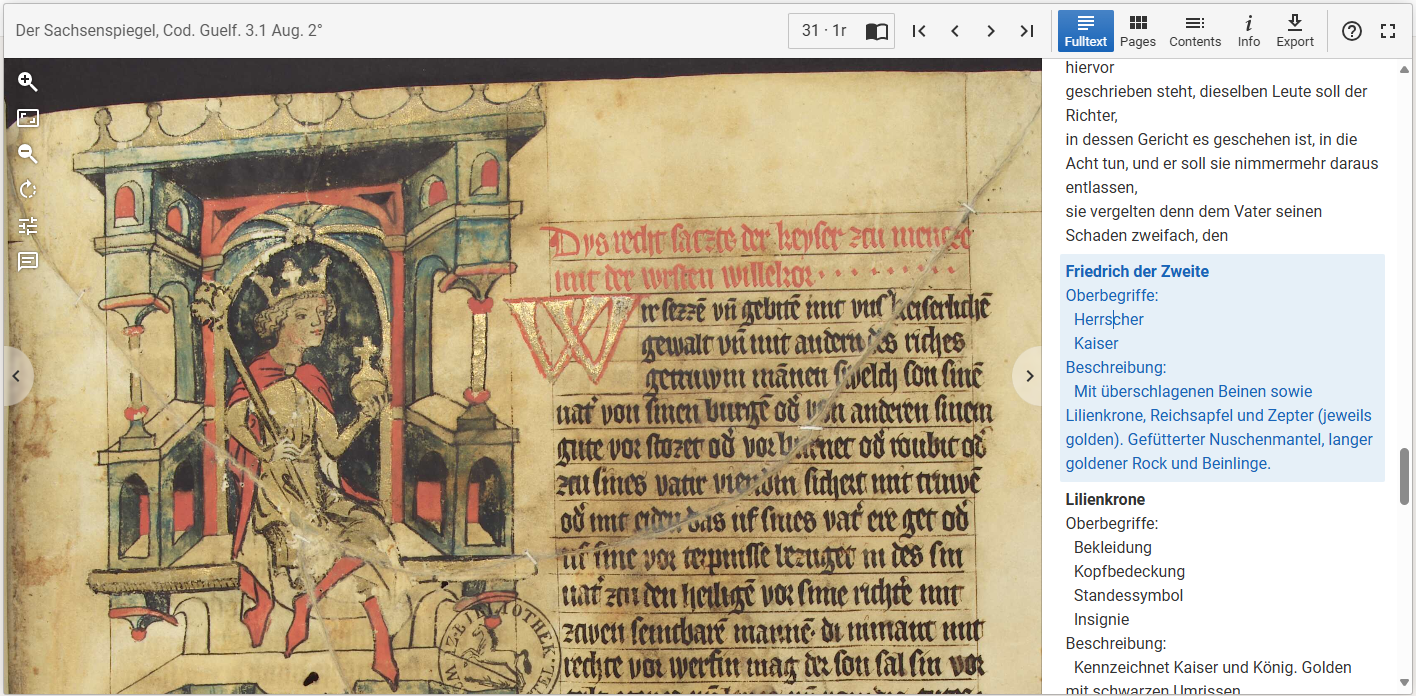 Der Sachsenspiegel, Cod. Guelf. 3.1 Aug. 2°
31 · 1r
Fulltext
Pages
Contents
Info
Export
Dys recht saczte der keyser zcu mencze
mit der vursten willekor
Wir sezzē vn̄ gebitē mit vnsˀ keiserlichē
gewalt vn̄ mit andern des riches
getruwin mānen swelch son sinē
uatˀ von sinen burgē odˀ von anderen sinem
gute vor stozet odˀ vor burnet odˀ roubit odˀ
zcu sines vatir vienden sichert mit truwē
odˀ mit eiden das uf sines vatˀ ere get odˀ
uf sine vor terpnisse bezuget in des sin
uatˀ zcu den heiligē vor sime richte mit
zcwen sentbarē mannē di nimant mit
rechte vor werfin mag der son sal sin vor
BIBLIOTHEK
hiervor
geschrieben steht, dieselben Leute soll der
Richter,
in dessen Gericht es geschehen ist, in die
Acht tun, und er soll sie nimmermehr daraus
entlassen,
sie vergelten denn dem Vater seinen
Schaden zweifach, den
Friedrich der Zweite
Oberbegriffe:
Herrscher
Kaiser
Beschreibung:
Mit überschlagenen Beinen sowie
Lilienkrone, Reichsapfel und Zepter (jeweils
golden). Gefütterter Nuschenmantel, langer
goldener Rock und Beinlinge.
Lilienkrone
Oberbegriffe:
Bekleidung
Kopfbedeckung
Standessymbol
Insignie
Beschreibung:
Kennzeichnet Kaiser und König. Golden
mit schwarzen Umrissen